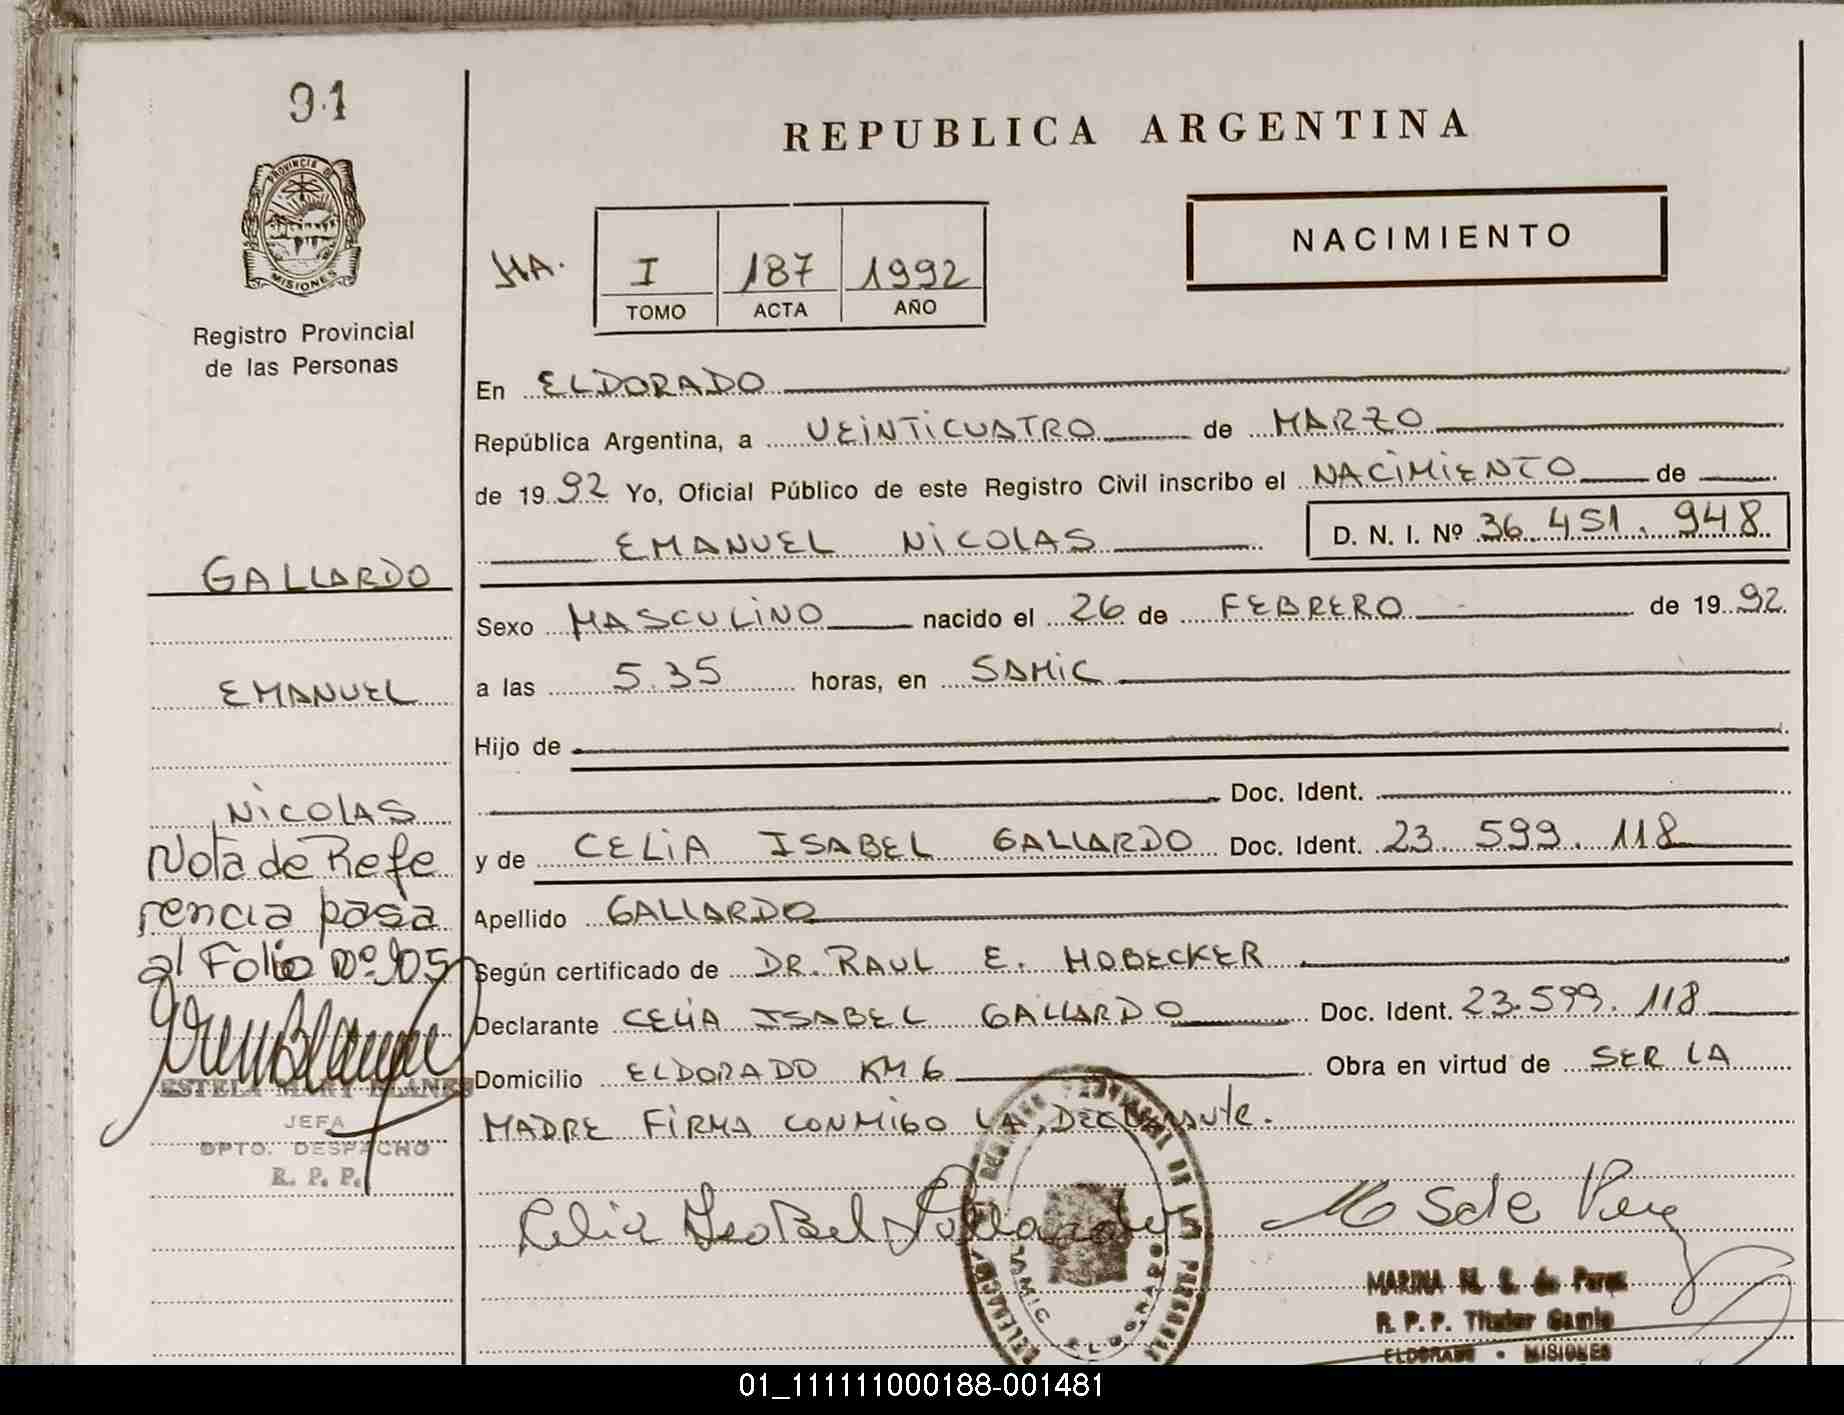 91
REPUBLICA ARGENTINA
PROVINCIA DE
MISIONES
Registro Provincial
de las Personas
HA.
I 187 1992
TOMO ACTA AÑO
NACIMIENTO
En ELDORADO
República Argentina, a VEINTICUATRO de MARZO
de 1992 Yo, Oficial Público de este Registro Civil inscribo el NACIMIENTO de
EMANUEL NICOLAS D. N. I. Nº 36.451.948
GALLARDO
Sexo MASCULINO nacido el 26 de FEBRERO de 1992.
EMANUEL
a las 5.35 horas, en SAMIC
Hijo de
Doc. Ident.
NICOLAS
y de CELIA ISABEL GALLARDO Doc. Ident. 23.599.118
Nota de Refe
rencia pasa
al Folio nº 105
Apellido GALLARDO
Según certificado de DR. RAUL E. HOBECKER
Declarante CELIA ISABEL GALLARDO Doc. Ident. 23.599.118
Domicilio ELDORADO KM 6 Obra en virtud de SER LA
MADRE FIRMA CONMIGO LA DECLARANTE.
ESTELA MARY BLANES
JEFA
DPTO. DESPACHO
R. P. P.
Celia Isabel Gallardo
M S de Perez
REGISTRO PROVINCIAL DE LAS PERSONAS
DELEGACION
SAMIC ELDORADO
MARINA M. S. de Perez
R. P. P. Titular Samic
ELDORADO - MISIONES
01_111111000188-001481